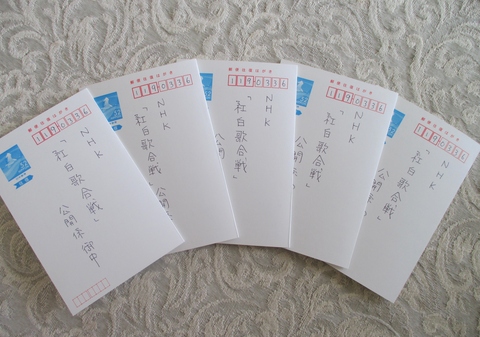 郵便往復はがき
1190336
NHK
「紅白歌合戦」
公開係御中
郵便往復はがき
1190336
NHK
「紅白歌合戦」
公開係
郵便往復はがき
1190336
NHK
「紅白歌合戦」
公開
郵便往復はがき
1190336
NHK
「紅白歌合戦」
公開係
郵便往復はがき
1190336
NHK
「紅白歌合戦」
公開係